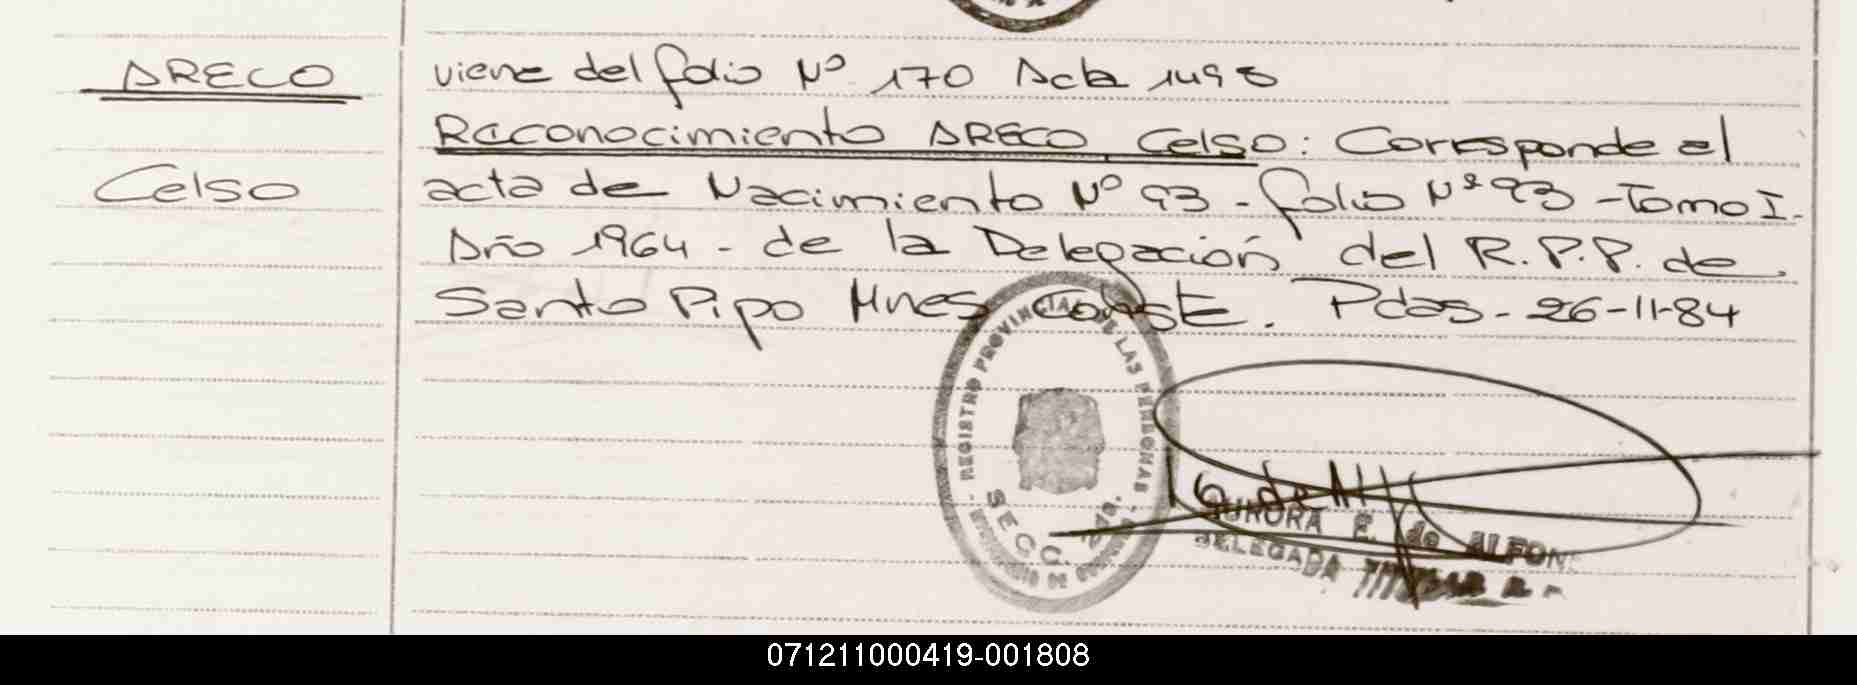 ARECO
Celso
viene del folio Nº 170 Acta 1495
Reconocimiento ARECO Celso: Corresponde al
acta de Nacimiento Nº 93 - folio Nº 93 - Tomo I.
Año 1964 - de la Delegación del R.P.P. de
Santo Pipo Mnes Conste. Pdas - 26-11-84
- REGISTRO PROVINCIAL DE LAS PERSONAS -
SECC.
AURORA E. de ALFON
DELEGADA TITULAR
071211000419-001808